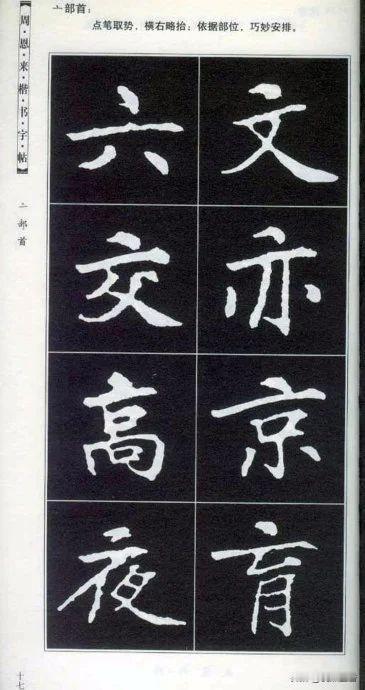 亠部首：
点笔取势，横右略抬；依据部位，巧妙安排。
周·恩·来·楷·书·字·帖
亠部首
文六
亦交
京高
肓夜
十七